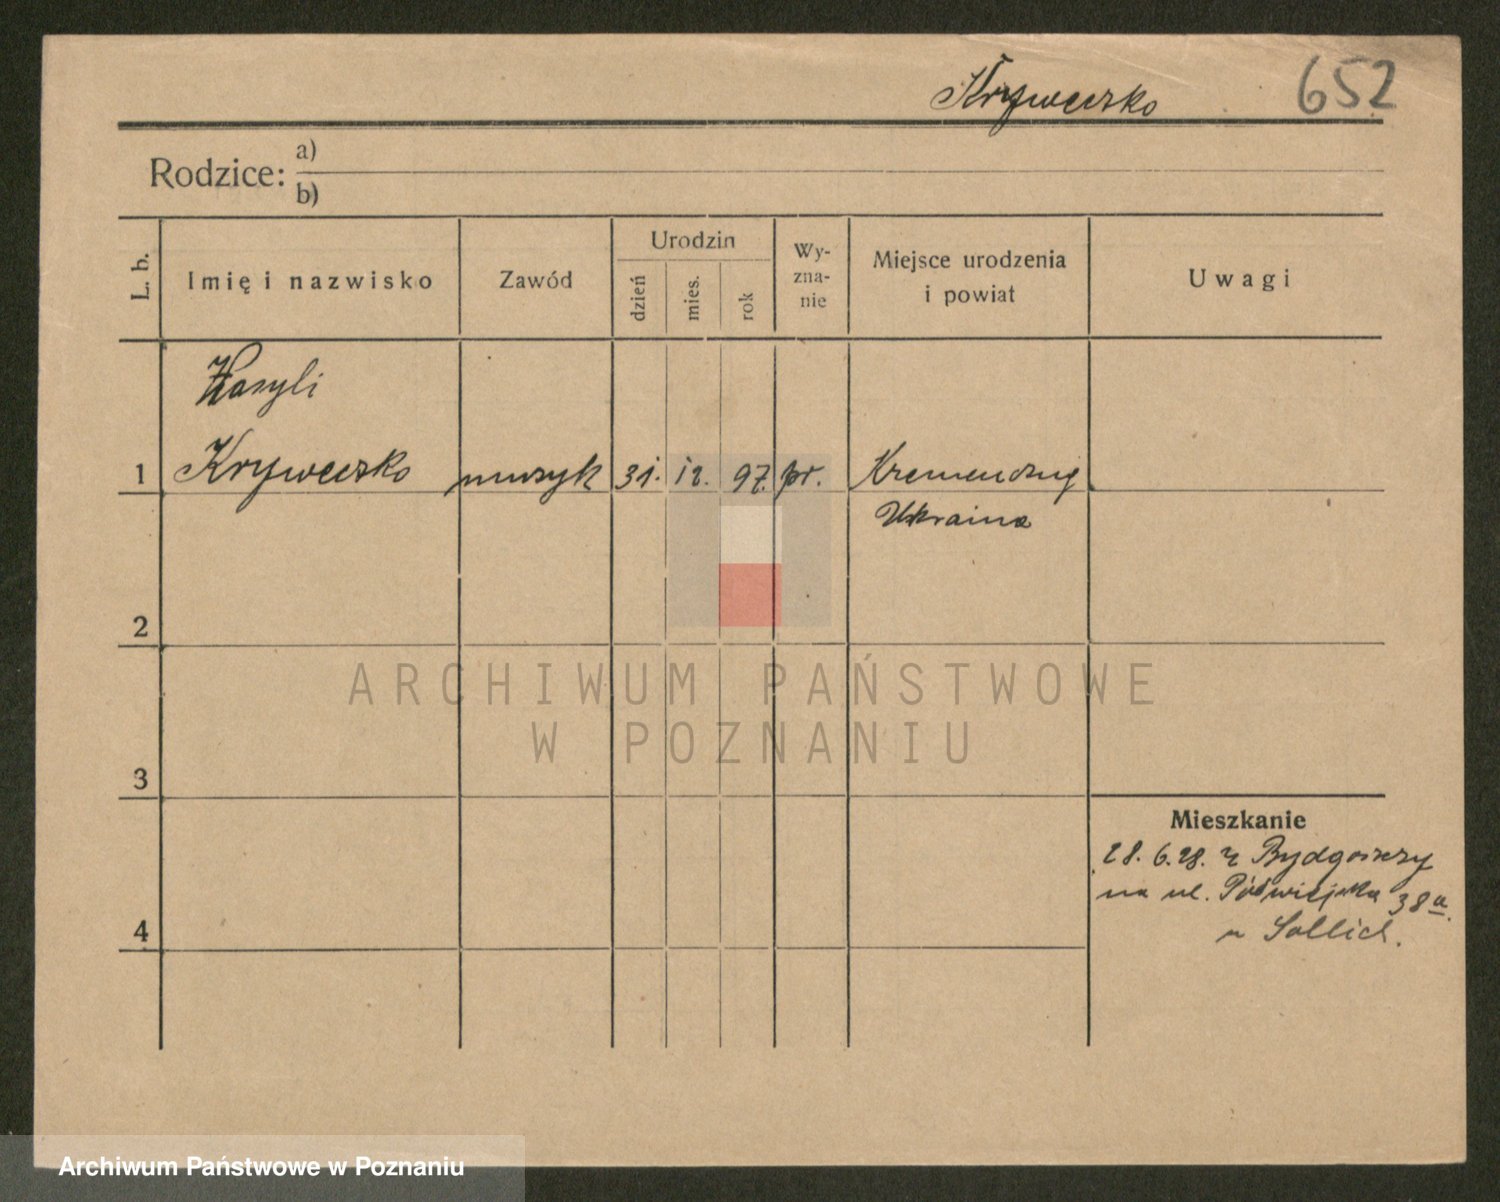 Kryweczko 652
Rodzice: a)
b)
L. b. Imię i nazwisko Zawód Urodzin dzień mies. rok Wy-zna-nie Miejsce urodzenia i powiat Uwagi
Wasyli
1 Kryweczko muzyk 31. 12. 97. pr. Kremenczug
Ukraina
2
ARCHIWUM PAŃSTWOWE
W POZNANIU
3
Mieszkanie
28. 6. 28. z Bydgoszczy
na ul. Półwiejska 38a.
u
4
Archiwum Państwowe w Poznaniu